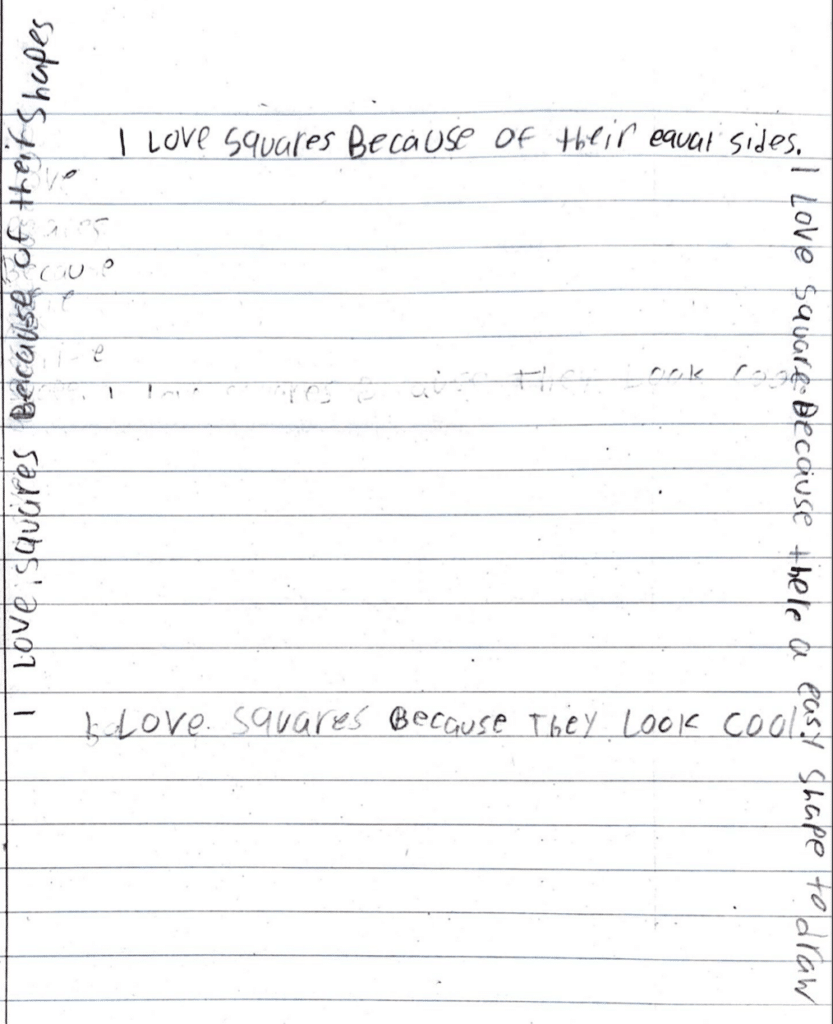 I Love Squares Because of their equal sides.
I Love Square Because there a easy shape to draw
I Love Squares Because They Look Cool.
I Love squares Because of their Shapes